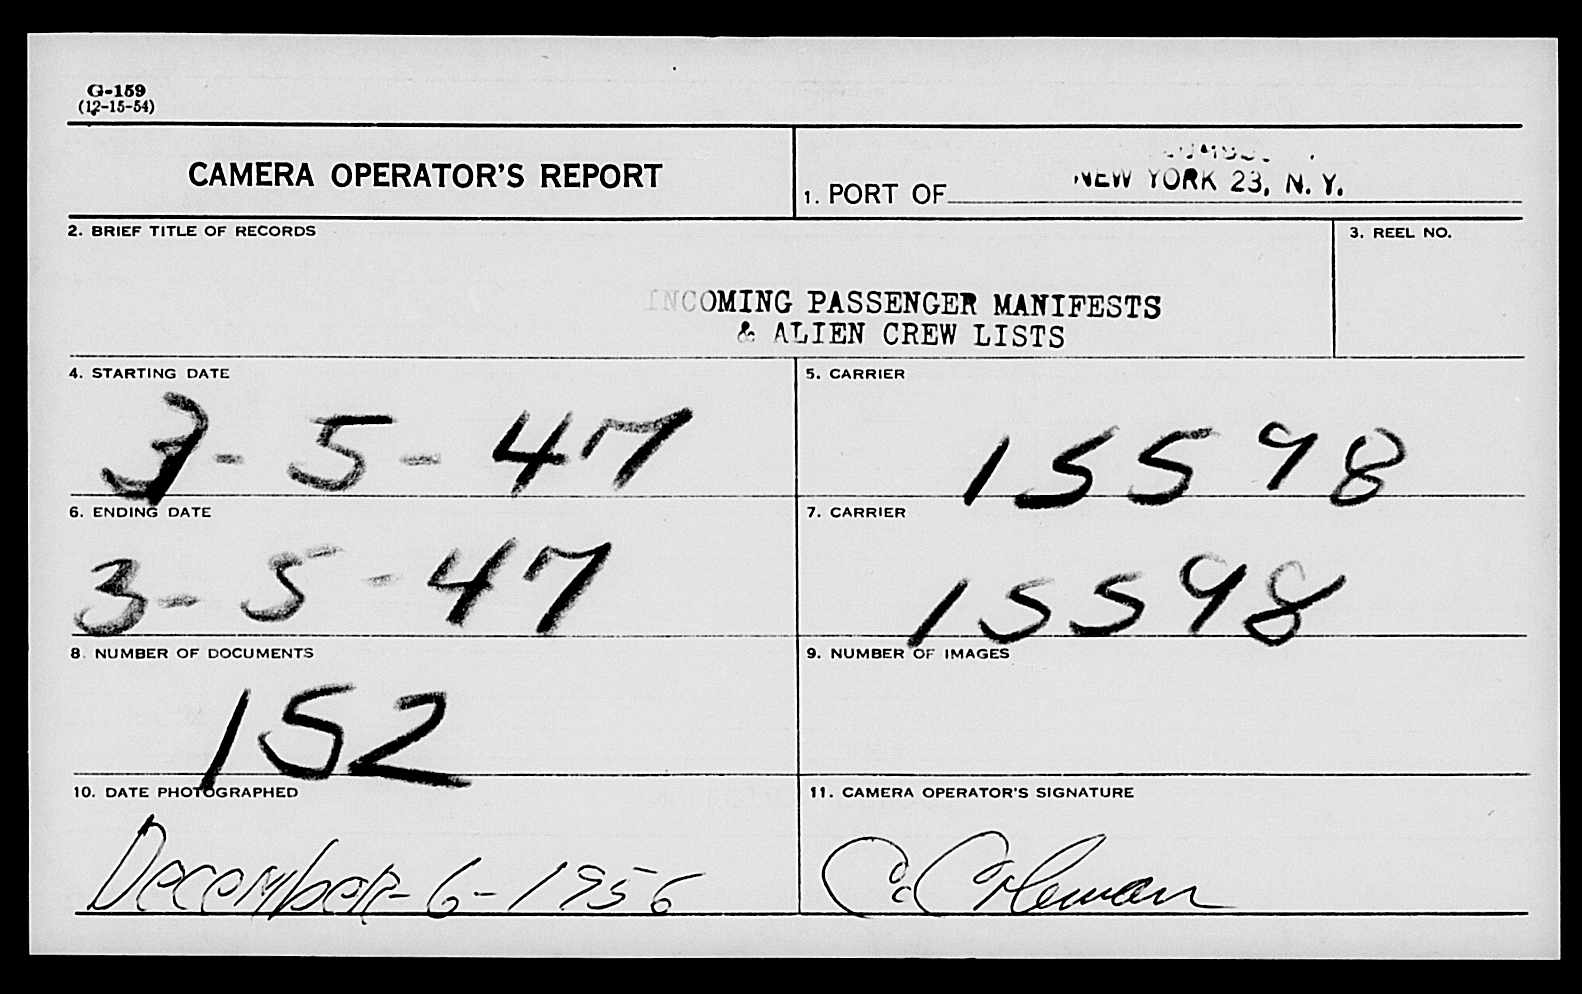 G-159
(12-15-54)
CAMERA OPERATOR'S REPORT
1. PORT OF NEW YORK 23, N. Y.
2. BRIEF TITLE OF RECORDS
3. REEL NO.
INCOMING PASSENGER MANIFESTS
& ALIEN CREW LISTS
4. STARTING DATE
3-5-47
5. CARRIER
15598
6. ENDING DATE
3-5-47
7. CARRIER
15598
8. NUMBER OF DOCUMENTS
152
9. NUMBER OF IMAGES
10. DATE PHOTOGRAPHED
December-6-1956
11. CAMERA OPERATOR'S SIGNATURE
C. Coleman